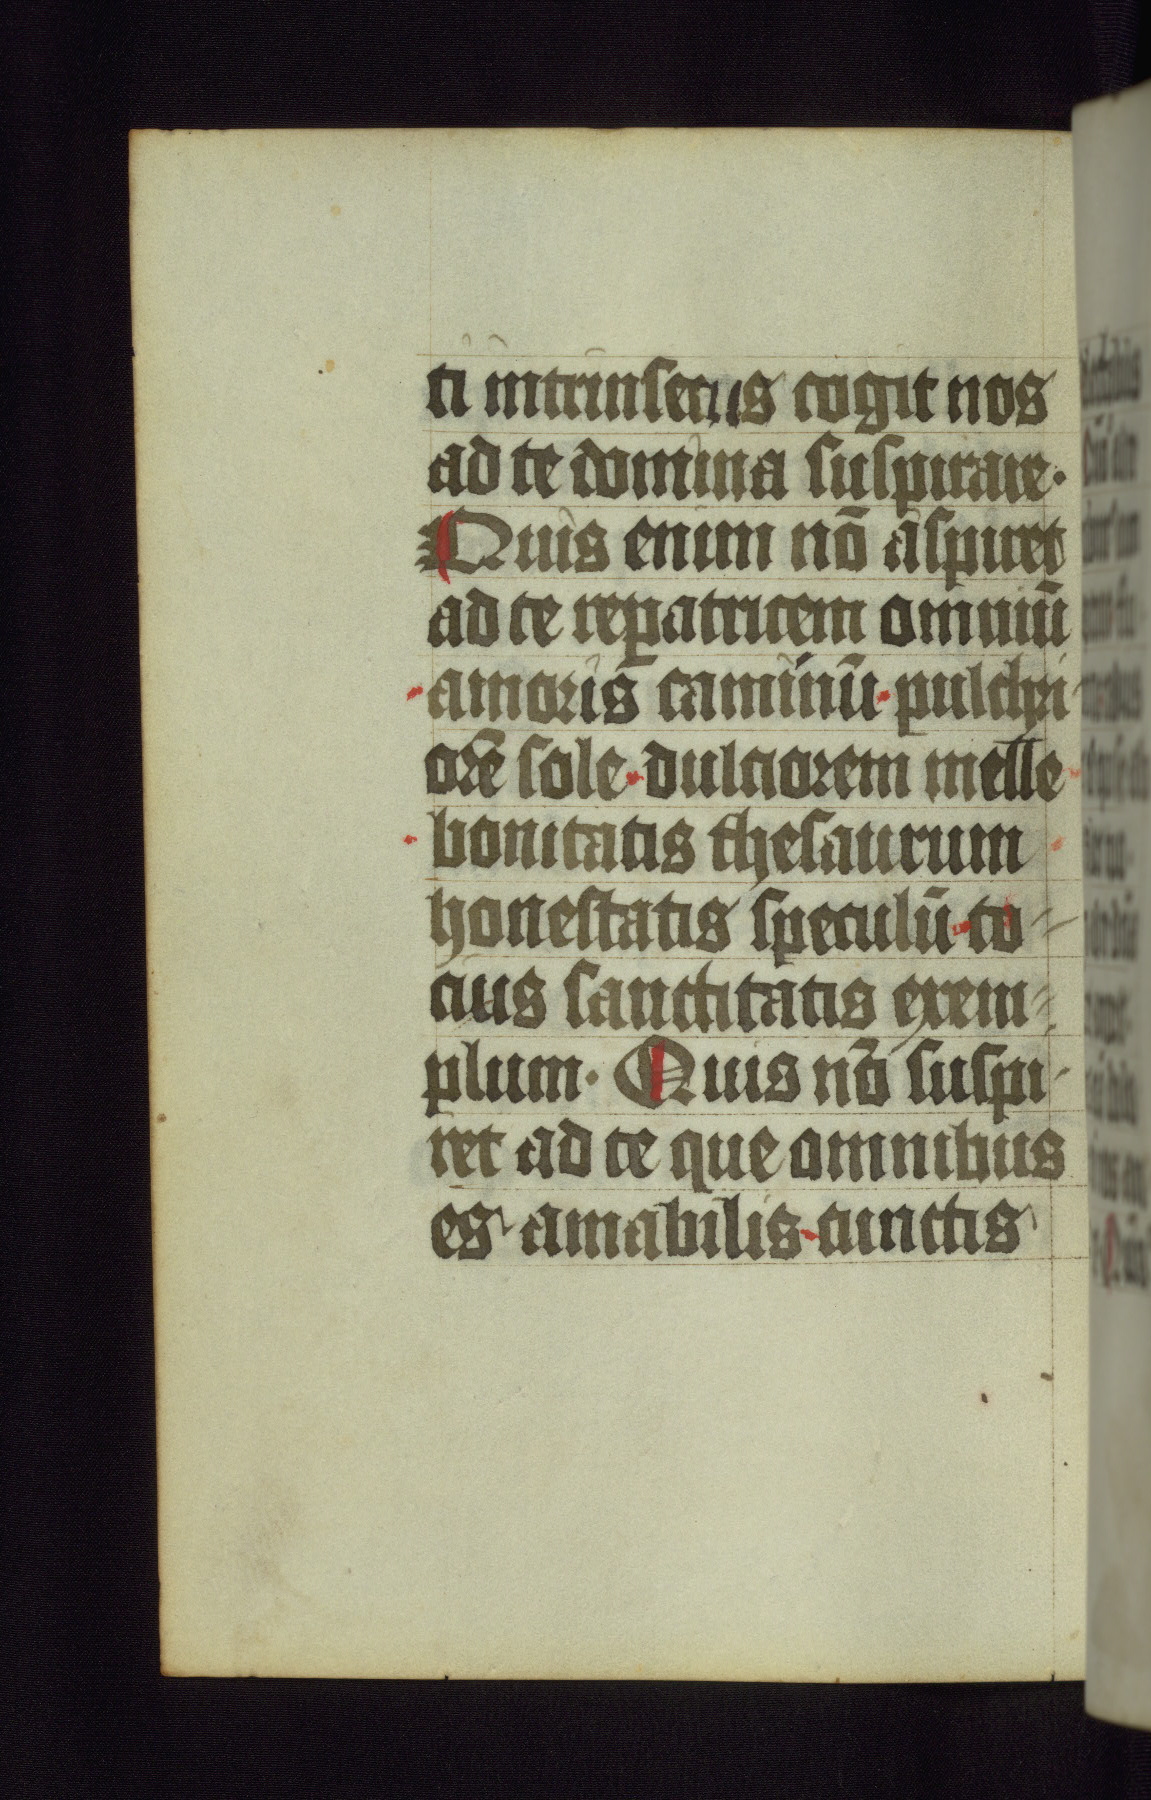 ti intrinsecus cogit nos
ad te domina suspirare·
Quis enim nō aspiret
ad te reꝑatricem omniū
amoris caminū· pulchri
orē sole· dulciorem melle
bonitatis thesaurum
honestatis speculū· to-
cius sanctitatis exem-
plum· Quis nō suspi-
ret ad te que omnibus
es amabilis· cunctis